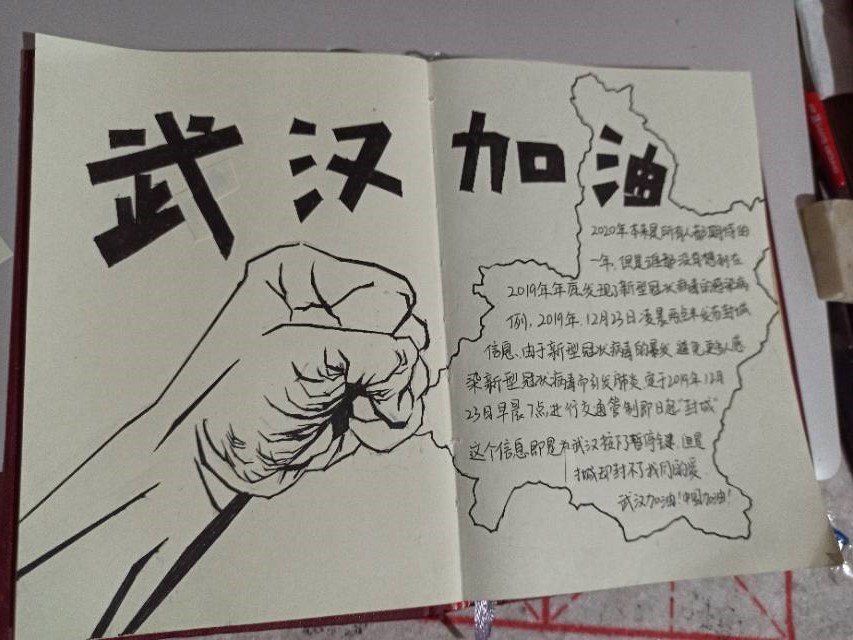 武汉加油
2020年本来是所有人都期待的
一年,但是谁都没有想到在
2019年年底发现了新型冠状病毒的感染病
例,2019年12月23日凌晨两点半发布封城
信息、由于新型冠状病毒的暴发 避免更多人感
染新型冠状病毒而引发肺炎 定于2019年12月
23日早晨7点,进行交通管制即日起"封城"
这个信息即是为武汉按下暂停键,但是
封城却封不了我们的爱
武汉加油!中国加油!